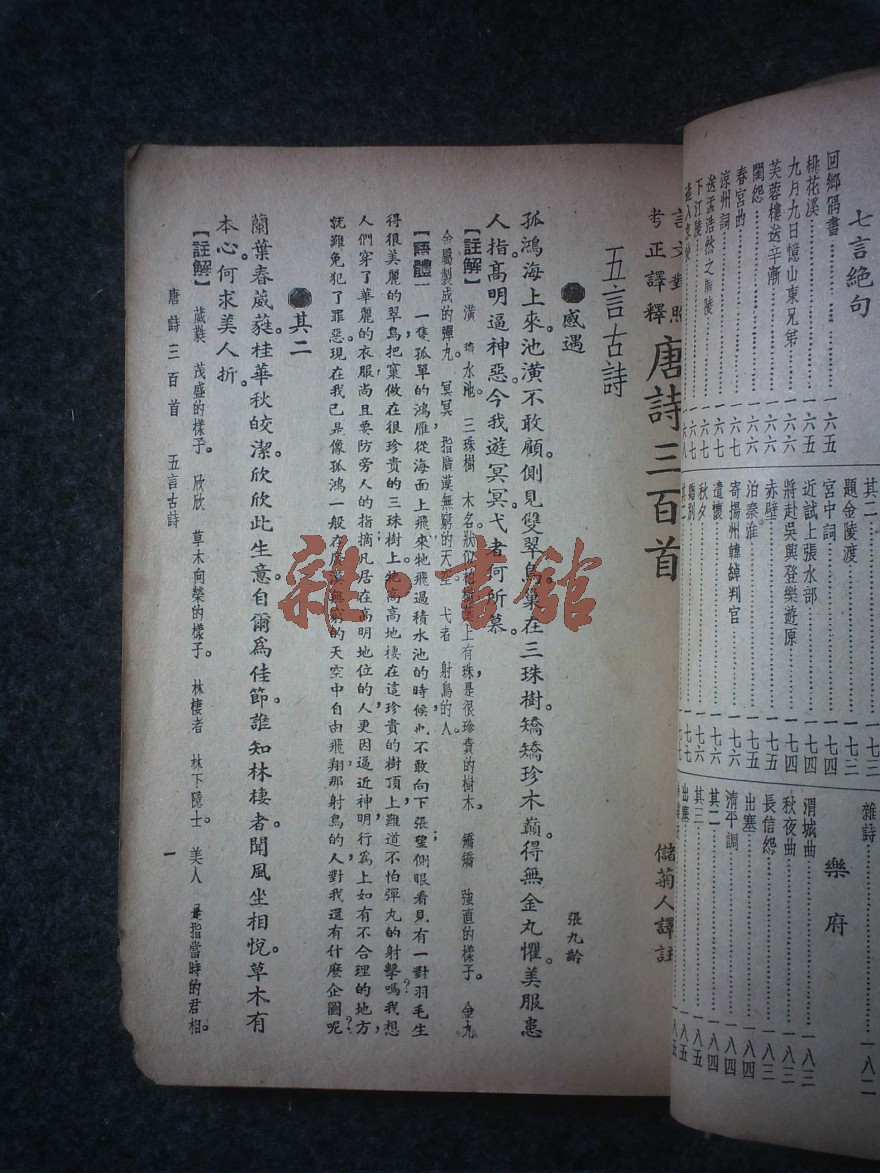 七言絕句
回鄉偶書 一六五
桃花溪 一六五
九月九日憶山東兄弟 一六六
芙蓉樓送辛漸 一六六
閨怨 一六六
春宮曲 一六七
涼州詞 一六七
送孟浩然之廣陵 一六七
下江陵 一六七
一六八
其二 一七三
題金陵渡 一七三
宮中詞 一七四
近試上張水部 一七四
將赴吳興登樂遊原 一七四
赤壁 一七五
泊秦淮 一七五
寄揚州韓綽判官 一七六
遣懷 一七六
秋夕 一七六
贈別 一七七
其二 一七七
雜詩 一八二
樂府
渭城曲 一八三
秋夜曲 一八三
長信怨 一八三
出塞 一八四
清平調 一八四
其二 一八四
其三 一八五
出塞 一八五
一八五
言文對照
考正譯釋
唐詩三百首
儲菊人譯註
五言古詩
感遇 張九齡
孤鴻海上來。池潢不敢顧。側見雙翠鳥。巢在三珠樹。矯矯珍木巔。得無金丸懼。美服患
人指。高明逼神惡。今我遊冥冥。弋者何所慕。
【註解】 潢 水池。 三珠樹 木名狀似柏樹葉上有珠,是很珍貴的樹木。 矯矯 強直的樣子。 金丸
金屬製成的彈丸。 冥冥 指廣漠無窮的天空。 弋者 射鳥的人。
【語體】 一隻孤單的鴻雁從海面上飛來,牠飛過積水池的時候,也不敢向下張望;側眼看見有一對羽毛生
得很美麗的翠鳥,把窠做在很珍貴的三珠樹上。牠高高地棲在這珍貴的樹頂上,難道不怕彈丸的射擊嗎?我想
人們穿了華麗的衣服,尚且要防旁人的指摘,凡居在高明地位的人,更因逼近神明,行為上如有不合理的地方,
就難免犯了罪惡,現在我已是像孤鴻一般,在廣漠無窮的天空中自由飛翔,那射鳥的人,對我還有什麼企圖呢?
其二
蘭葉春葳蕤。桂華秋皎潔。欣欣此生意。自爾為佳節。誰知林棲者。聞風坐相悅。草木有
本心。何求美人折。
【註解】 葳蕤 茂盛的樣子。 欣欣 草木向榮的樣子。 林棲者 林下隱士。 美人 是指當時的君相。
唐詩三百首 五言古詩 一
雜·書館